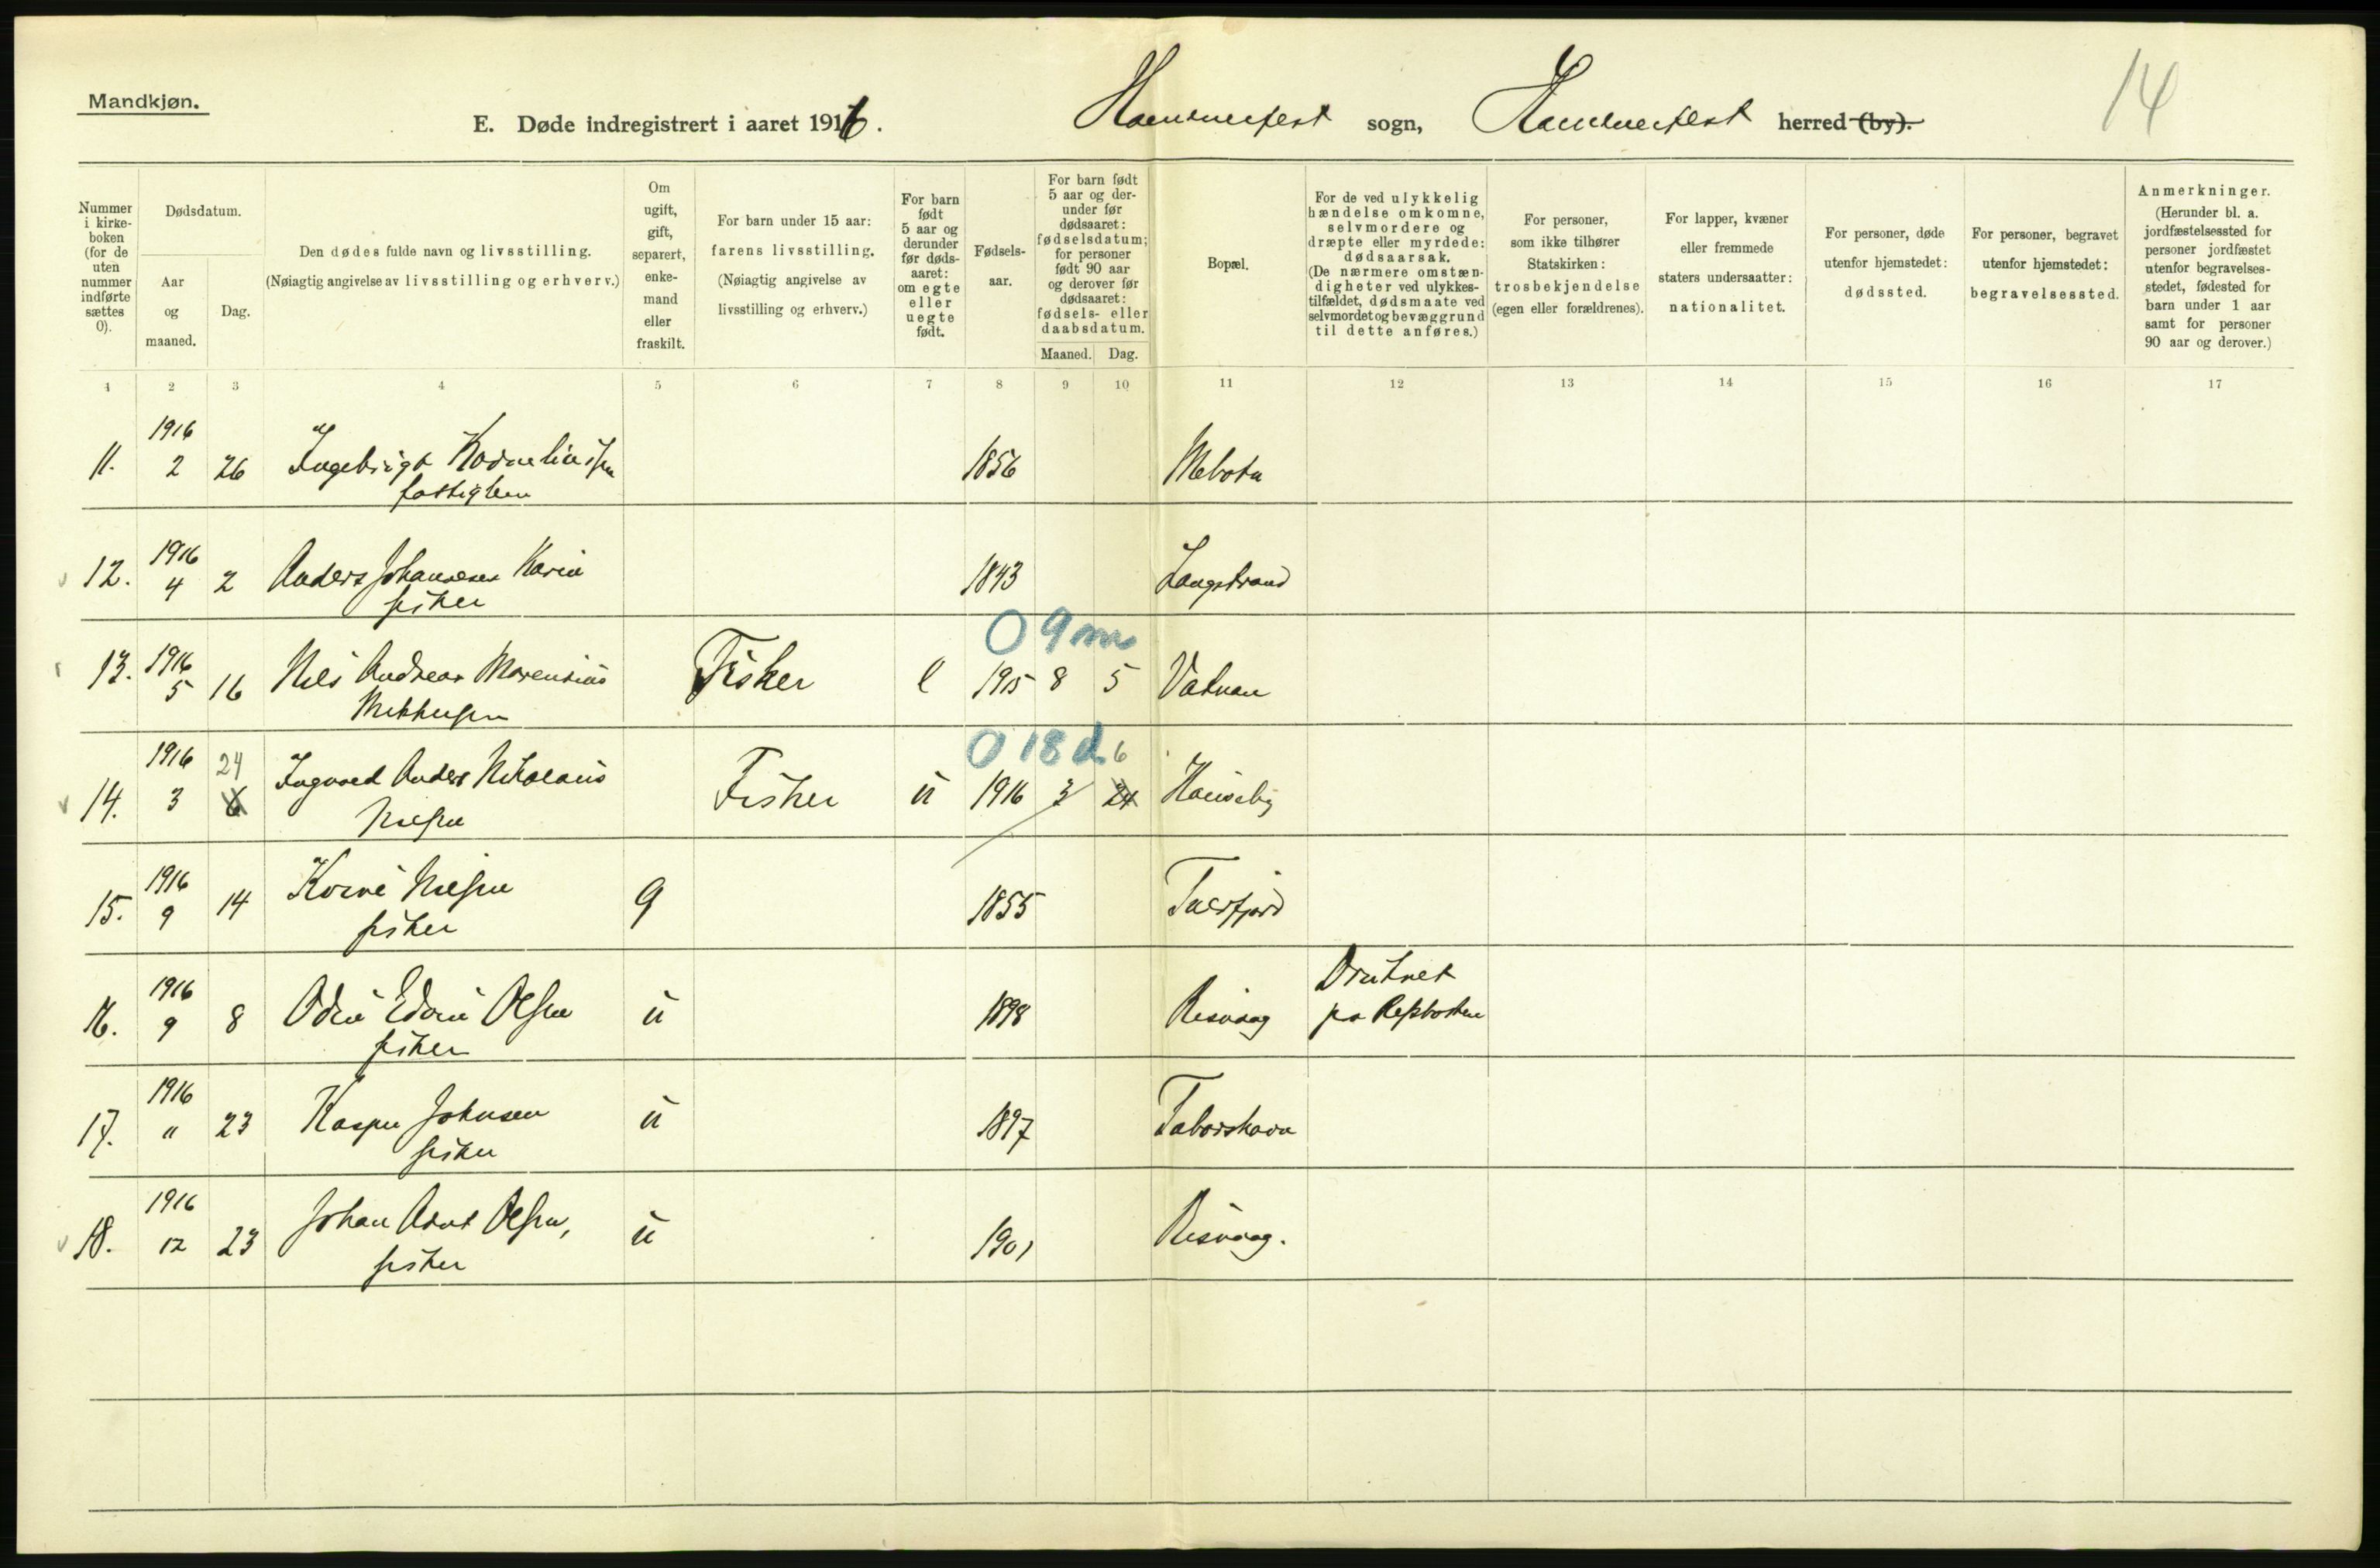 Mandkjøn.
E. Døde indregistrert i aaret 1916.
Hammerfest sogn, Hammerfest herred (by).
14
Nummer i kirke-boken (for de uten nummer indførte sættes 0).
Dødsdatum.
Aar og maaned.
Dag.
Den dødes fulde navn og livsstilling.
(Nøiagtig angivelse av livsstilling og erhverv.)
Om ugift, gift, separert, enke-mand eller fraskilt.
For barn under 15 aar:
farens livsstilling.
(Nøiagtig angivelse av livsstilling og erhverv.)
For barn født 5 aar og derunder før døds-aaret: om egte eller uegte født.
Fødsels-aar.
For barn født 5 aar og der-under før dødsaaret: fødselsdatum; for personer født 90 aar og derover før dødsaaret: fødsels- eller daabsdatum.
Maaned. Dag.
Bopæl.
For de ved ulykkelig hændelse omkomne, selvmordere og dræpte eller myrdede: dødsaarsak.
(De nærmere omstæn-digheter ved ulykkes-tilfældet, dødsmaate ved selvmordet og bevæggrund til dette anføres.)
For personer, som ikke tilhører Statskirken: trosbekjendelse (egen eller forældrenes).
For lapper, kvæner eller fremmede staters undersaatter: nationalitet.
For personer, døde utenfor hjemstedet: dødssted.
For personer, begravet utenfor hjemstedet: begravelsessted.
Anmerkninger.
(Herunder bl. a. jordfæstelsessted for personer jordfæstet utenfor begravelses-stedet, fødested for barn under 1 aar samt for personer 90 aar og derover.)
1 2 3 4 5 6 7 8 9 10 11 12 13 14 15 16 17
1916
11. 2 26 Ingebrigt Korneliussen 1856
1916
12. 4 2 Anders Johannesen 1843 Langstrand
fisker
0 9 m
1916
13. 5 16 Nils Andreas Fisker e 1915 8 5 Vatnan
Mikkelsen
0 18 d 6
1916 24
14. 3 6 Ingvald Anders Nikolaus Fisker u 1916 3 24
Nilsen
1916
15. 9 14 Nilsen g 1855
fisker
1916 Druknet
16. 9 8 Odin Edvin Olsen u 1898 Risvaag paa Repbotten
fisker
1916
17. " 23 Kasper Johnsen u 1897
fisker
1916
18. 12 23 Johan Arnt Olsen, u 1901 Risvaag.
fisker